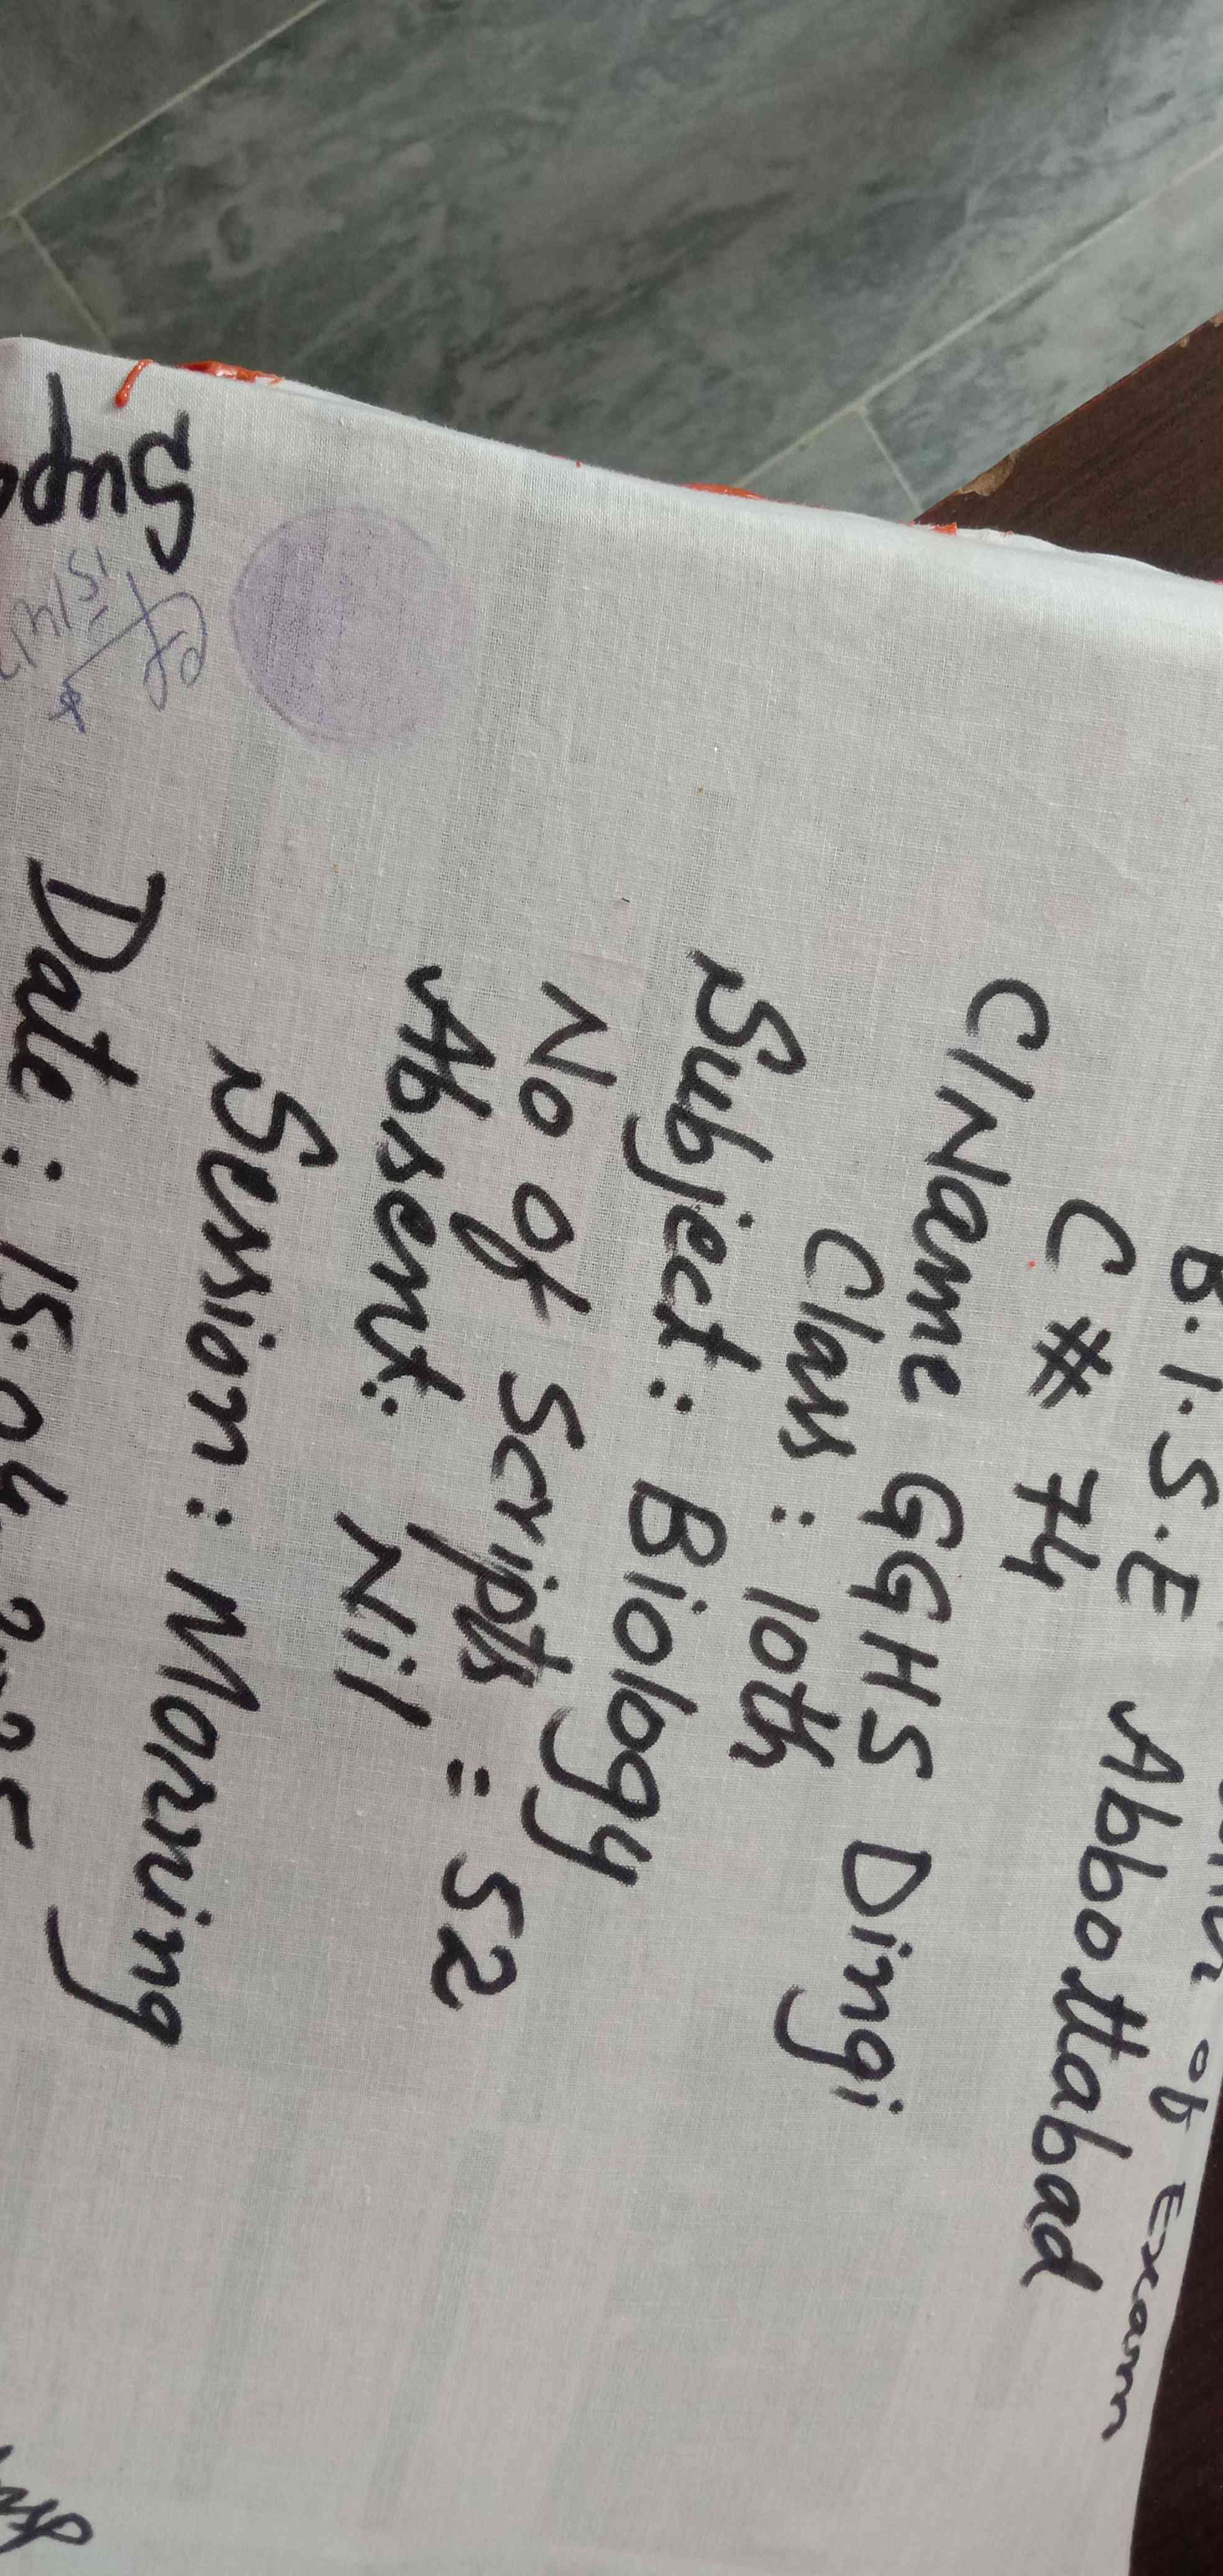 of Exam
B.I.S.E Abbottabad
C # 74
C/Name GGHS Dingi
Class : 10th
Subject : Biology
No of Scripts = 52
Absent: Nil
Session : Morning
Date : 15.04.2025